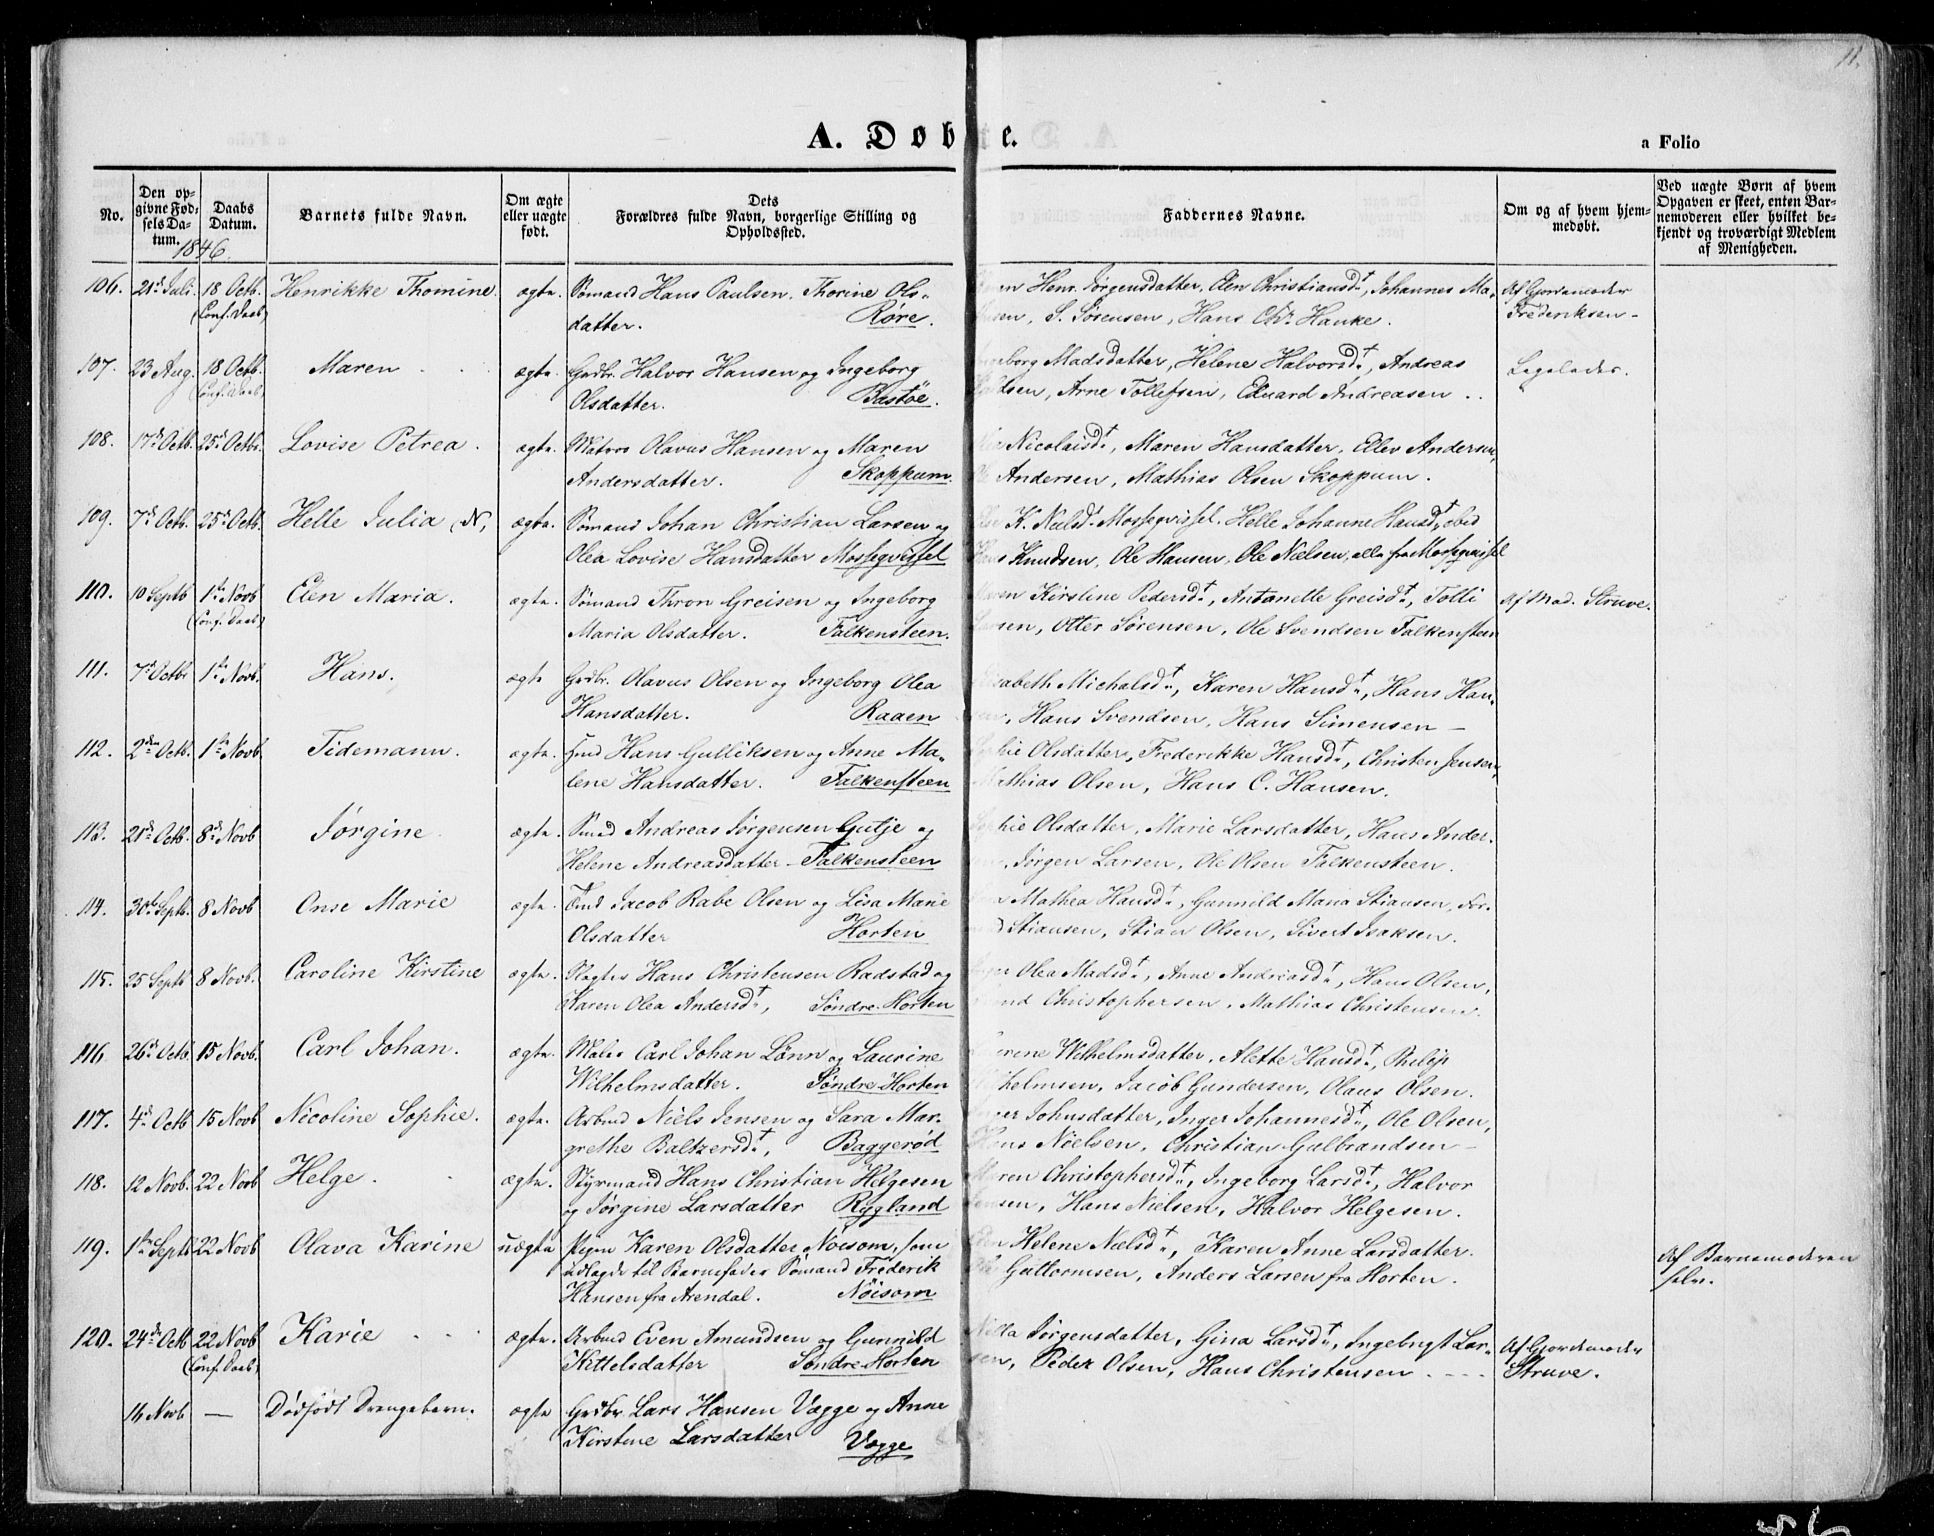 11.
A. Døbte.
a Folio
No.
Den opgivne Fødselsdatum.
Daabs Datum.
Barnets fulde Navn.
Om ægte eller uægte født.
Dets Forældres fulde Navn, borgerlige Stilling og Opholdssted.
Faddernes Navne.
Om og af hvem hjemmedøbt.
Ved uægte Børn af hvem Opgaven er skeet, enten Barnemoderen eller hvilket bekjendt og troværdigt Medlem af Menigheden.
1846.
106. 21de Juli. 18 Octb. Henrikke Thomine. ægte. Sømand Hans Paulsen. Thorine Ols- Henr. Jørgensdatter, Elen Christiansdt, Johannes Ma- Af Gjordemoder
(Conf. Daab) datter. Røre. S. Sørensen, Hans Chr. Hanke. Frederiksen-
107. 23 Aug. 18 Octb. Maren ægte. Grdbr. Halvor Hansen og Ingeborg Madsdatter, Helene Halvorsdt, Andreas
(Conf. Daab) Olsdatter. Bastøe. Arne Tollefsen, Eduard Andreasen ..
108. 17de Octb. 25de Octbr. Lovise Petrea. ægte. Matros Olavus Hansen og Maren Nicolaisdt, Maren Hansdatter, Elev Andersen,
Andersdatter. Skoppum. Andersen, Mathias Olsen Skoppum.
109. 7de Octb. 25de Octb. Helle Julia (N, ægte. Sømand Johan Christian Larsen og K. Nielsdt Mossegvissel. Helle Johanne Hansdt, ibid
Olea Lovise Hansdatter Mossegvissel Knudsen, Ole Hansen, Ole Nielsen, alle fra Mossegvissel
110. 10 Septb 1ste Novb Elen Maria. ægte. Sømand Thron Greisen og Ingeborg Kirstine Pedersdt, Antonette Greisdt, Tolli Af Mad. Struve.
(Conf. Daab) Maria Olsdatter. Falkensteen. Otter Sørensen, Ole Svendsen Falkensteen
111. 7de Octbr 1ste Novb. Hans. ægte Grdbr. Olavus Olsen og Ingeborg Olea Michalsdt, Karen Hansdt, Hans Han-
Hansdatter. Raaen Hans Svendsen, Hans Simensen -
112. 2den Octb. 1ste Novb. Tidemann. ægte. Hmd Hans Gulliksen og Anne Ma- Olsdatter, Frederikke Hansdt, Christen Jensen,
lene Hansdatter. Falkensteen Mathias Olsen, Hans C. Hansen.
113. 21de Octb. 8de Novb Jørgine. ægte. Smed Andreas Jørgensen Gutje og Olsdatter, Marie Larsdatter, Hans Ander-
Helene Andreasdatter - Falkensteen Jørgen Larsen, Ole Olsen Falkensteen.
114. 30te Septb. 8 Novb Onse Marie ægte. Jacob Rabe Olsen og Lisa Marie Mathea Hansdt, Gunnild Maria Stiansen,
Olsdatter Horten Stiansen, Stian Olsen, Sivert Isaksen.
115. 25 Septb 8 Novb. Caroline Kirstine ægte. Slagter Hans Christensen Radstad og Olea Madsdt, Anne Andreasdt, Hans Olsen,
Karen Olea Andersdt, Søndre-Horten Christophersen, Mathias Christensen.
116. 26de Octb. 15 Novb. Carl Johan. ægte. Maler Carl Johan Lønn og Laurine Wilhelmsdatter, Alette Hansdt, Philip
Wilhelmsdatter. Søndre-Horten Jacob Gundersen, Olaus Olsen.
117. 4de Octb 15 Novb Nicoline Sophie. ægte. Arbmd Niels Jensen og Sara Mar- Johnsdatter, Inger Johannesdt, Ole Olsen,
grethe Baltzersdt, Baggerød Hans Nielsen, Christian Gulbrandsen -
118. 12 Novb. 22 Novb Helge. ægte. Styrmand Hans Christian Helgesen Maren Christophersdt, Ingeborg Larsdt, Halvor
og Jørgine Larsdatter Rygland Hans Nielsen, Halvor Helgesen.
119. 1ste Septb 22 Novb Olava Karine uægte Pigen Karen Olsdatter Nøisom, som Helene Nielsdt, Karen Anne Larsdatter. Af Barnemoderen
udlagde til Barnefader Sømand Frederik Guttormsen, Anders Larsen fra Horten. selv.
Hansen fra Arendal. Nöisom
120. 24de Octb 22 Novb Karie ægte. Arbmd Even Amundsen og Gunnild Jørgensdatter, Gina Larsdt, Ingebrigt Lar- Af Gjordemoder
(Conf. Daab) Kittelsdatter Søndre-Horten sen, Peder Olsen, Hans Christensen Struve.
14 Novb — Dødfødt Drengebarn. ægte Grdbr Lars Hansen Vægge og Anne
Kirstine Larsdatter Vægge